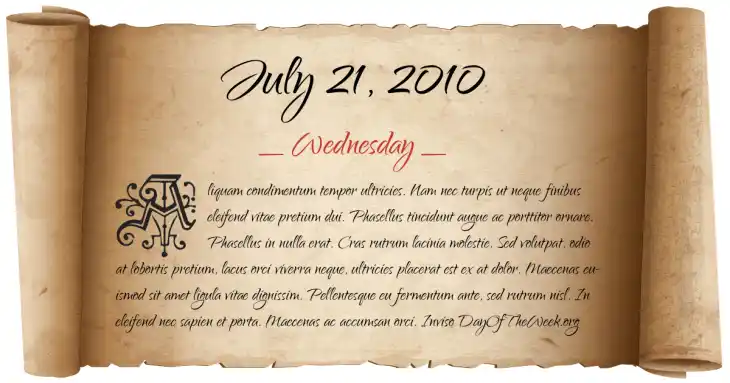 July 21, 2010
— Wednesday —
Aliquam condimentum tempor ultricies. Nam nec turpis ut neque finibus
eleifend vitae pretium dui. Phasellus tincidunt augue ac porttitor ornare.
Phasellus in nulla erat. Cras rutrum lacinia molestie. Sed volutpat, odio
at lobortis pretium, lacus orci viverra neque, ultricies placerat est ex at dolor. Maecenas eu-
ismod sit amet ligula vitae dignissim. Pellentesque eu fermentum ante, sed rutrum nisl. In
eleifend nec sapien et porta. Maecenas ac accumsan orci. Inviso DayOfTheWeek.org